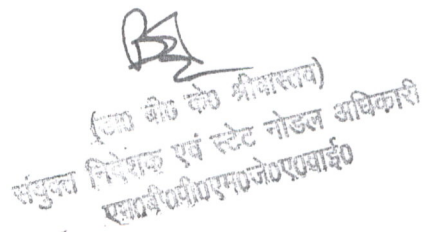 (डा० बी० के० श्रीवास्तव)
संयुक्त निदेशक एवं स्टेट नोडल अधिकारी
एन०बी०पी०एम०जे०ए०वाई०